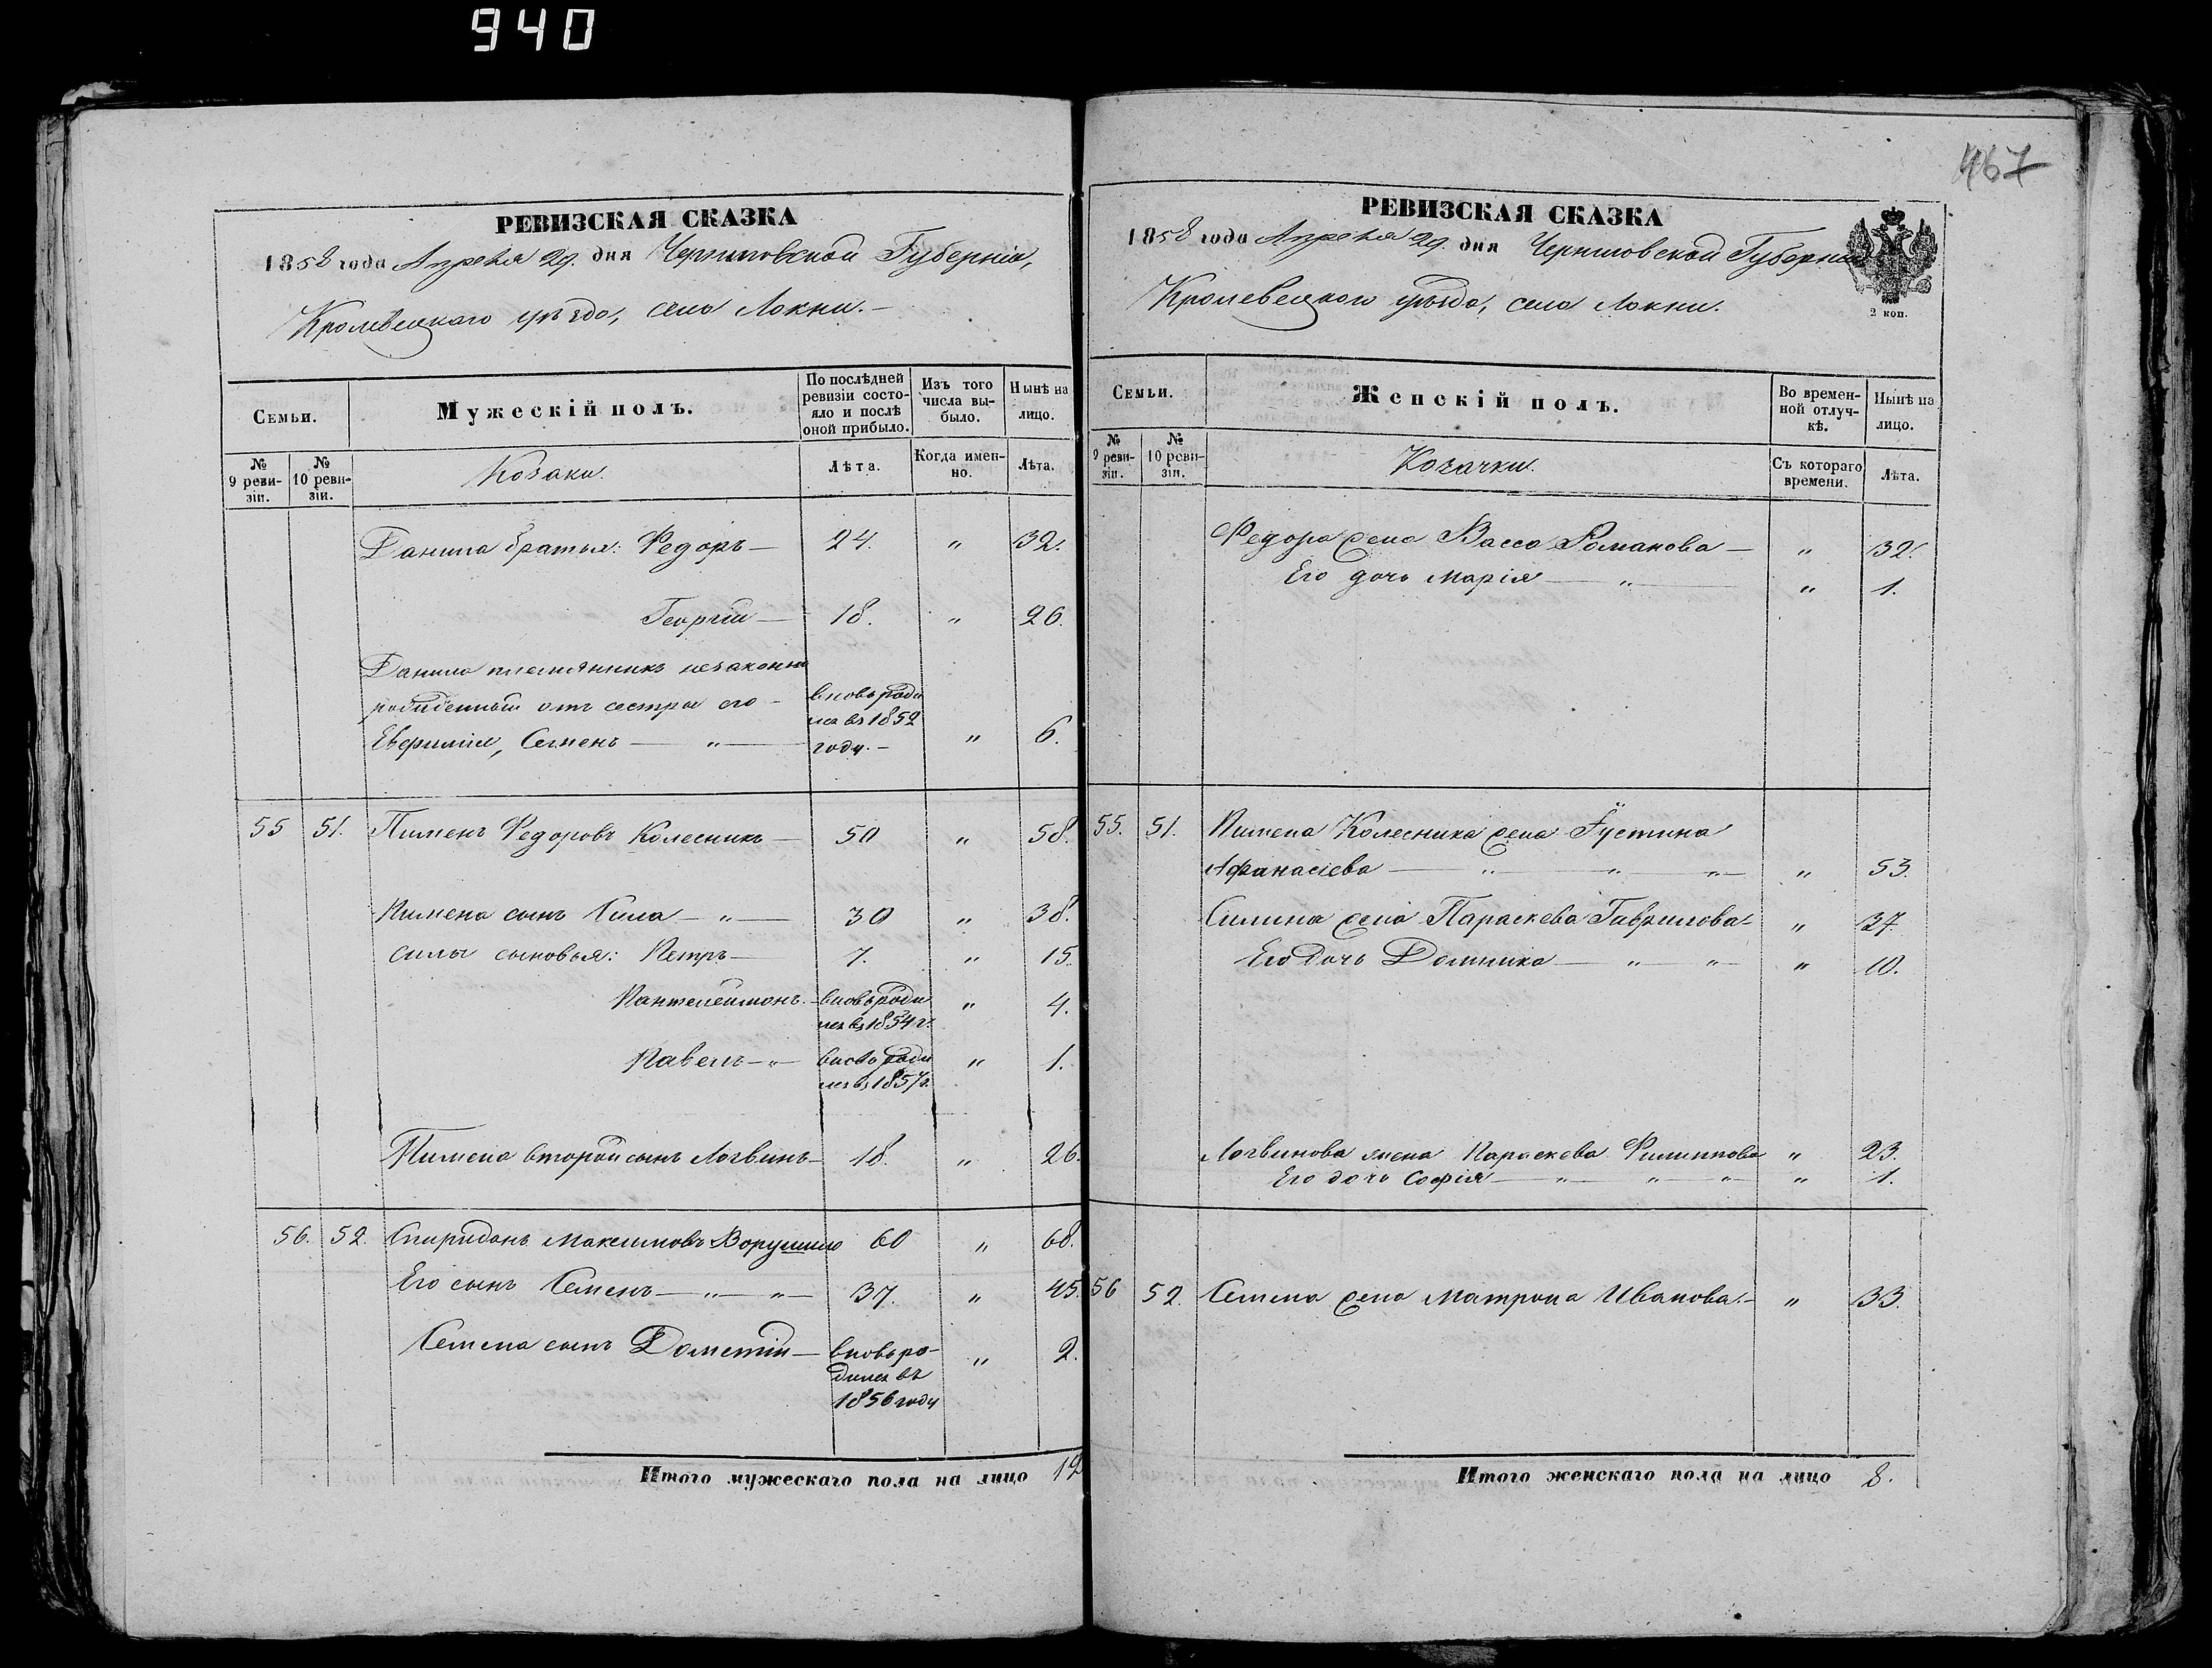 940
467
РЕВИЗСКАЯ СКАЗКА
1858 года Апреля 29. дня Черниговской Губерніи,
Кролевецкаго уѣзда, села Локни. —
Семьи.
Мужескій полъ.
По послѣдней ревизіи состо-
яло и послѣ
оной прибыло.
Изъ того
числа вы-
было.
Нынѣ на
лицо.
№
9 реви-
зіи.
№
10 реви-
зіи.
Козаки.
Лѣта.
Когда имен-
но.
Лѣта.
Данила братья: Федоръ — 24. " 32.
Георгій — 18. " 26.
Данила племянникъ незаконно
рожденный отъ сестры его - вновь роди
Евфиміи, Семенъ — " — лся въ 1852 году. — " 6.
55 51. Пименъ Федоровъ Колесникъ — 50 " 58.
Пимена сынъ Сила — " — 30 " 38.
Силы сыновья: Петръ — 7. " 15.
Пантелеймонъ. — вновь роди " 4.
лся въ 1854 г.
Павелъ — " — вновь роди " 1.
лся въ 1857 г.
Пимена второй сынъ Логвинъ — 18. " 26.
56. 52. Спиридонъ Максимовъ Ворушило 60 " 68.
Его сынъ Семенъ — " — " — 37. " 45.
Семена сынъ Дометій — вновь ро- " 2.
дился въ
1856 году
Итого мужескаго пола на лицо 12
РЕВИЗСКАЯ СКАЗКА
1858 года Апреля 29. дня Черниговской Губерніи
Кролевецкаго уѣзда, села Локни.
2 коп.
Семьи.
Женскій полъ.
Во времен-
ной отлуч-
кѣ.
Нынѣ на
лицо.
№
9 реви-
зіи.
№
10 реви-
зіи.
Козачки.
Съ котораго
времени.
Лѣта.
Федора жена Васса Романова — " 32.
Его дочь Марія — " — " 1.
55. 51. Пимена Колесника жена Іустина
Афанасіева — " — " — " — " 53.
Силина жена Параскева Гаврилова — " 37.
Его дочь Домника — " — " — " 10.
Логвинова жена Параскева Филиппова " 23.
Его дочь Софія — " — " — " — " 1.
56 52. Семена жена Матрона Иванова. — " 33.
Итого женскаго пола на лицо 8.